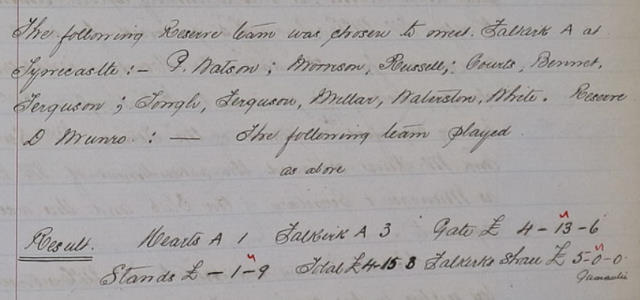 The following Reserve team was chosen to meet Falkirk A at
Tynecastle :- P. Watson ; Morrison, Russell ; Courts, Bennet,
Ferguson ; Tough, Ferguson, Millar, Waterston, White. Reserve
D Munro. : — The following team played
as above
Result. Hearts A 1 Falkirk A 3 Gate £ 4-13-6
Stands £ - 1-9 Total £4-15 3 Falkirks Share £ 5-0-0
Guarantee